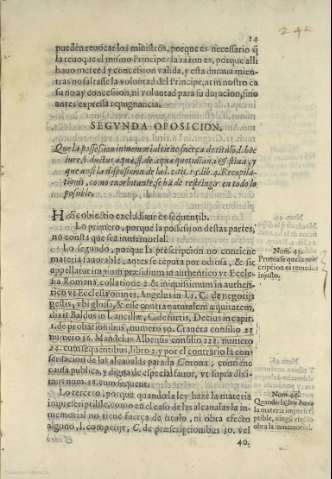 14
242
pueden reuocar los ministros, porque es necessario q̃
la reuoque el mismo Principe: la razon es, porque alli
huuo merced y concesion valida, y esta en mientras
no faltasse la voluntad del Principe, at in nostro ca
su no ay concesion, ni voluntad para su duracion, sino
antes expressa repugnancia.
SEGVNDA OPOSICION,
Que la possession inmemorial tiene fuerça de titulo. l. hoc
iure, §. ductus aquæ, ff. de aqua quotidiana, & æstiua, y
que ansi la disposicion de la l. 2. tit. 15. lib. 4. Recopila-
tionis, como exorbitante se ha de restringir en todo lo
possible.
Hoc obiectio excluditur ex sequentib.
Lo primero, porque la possession destas partes,
no consta que sea inmemorial.
Lo segundo, porque la prescripcion no contiene
materia fauorable, antes se reputa por odiosa, & sic
appellatur impium præsidium in authentico vt Eccle-
sia Romana, collatione 2. & iniquissimum in authen-
tico vt Ecclesiæ Romanæ, Angelus in l. 1. C. de negotijs
gestis, vbi glos. & esse contra naturalem æquitatem,
dixit Baldus in Decius in capit.
1. de probationibus, numero 36. Craueta consilio 25
numero 16. Mandelus Albensis consilio 222. numero
22. cum sequentibus, libro 2. y por el contrario la con
seruacion de las alcaualas para la Corona, contiene
causa publica, y digna de especial fauor, vt supra dixi-
mus num. 18. cum sequent.
Lo tercero, porque quando la ley haze la materia
impræscriptible, como en el caso de las alcaualas la in-
memorial no tiene fuerça de titulo, ni obra efecto
alguno, l. comperit, C. de præscriptionibus 30. vel
40.
Num. 43.
Prueuase que la præs
cripcion es remedio
injusto.
Num. 44.
Quando la ley haze
la materia imprescri-
ptible, ningũ efeto
obra la inmemorial.